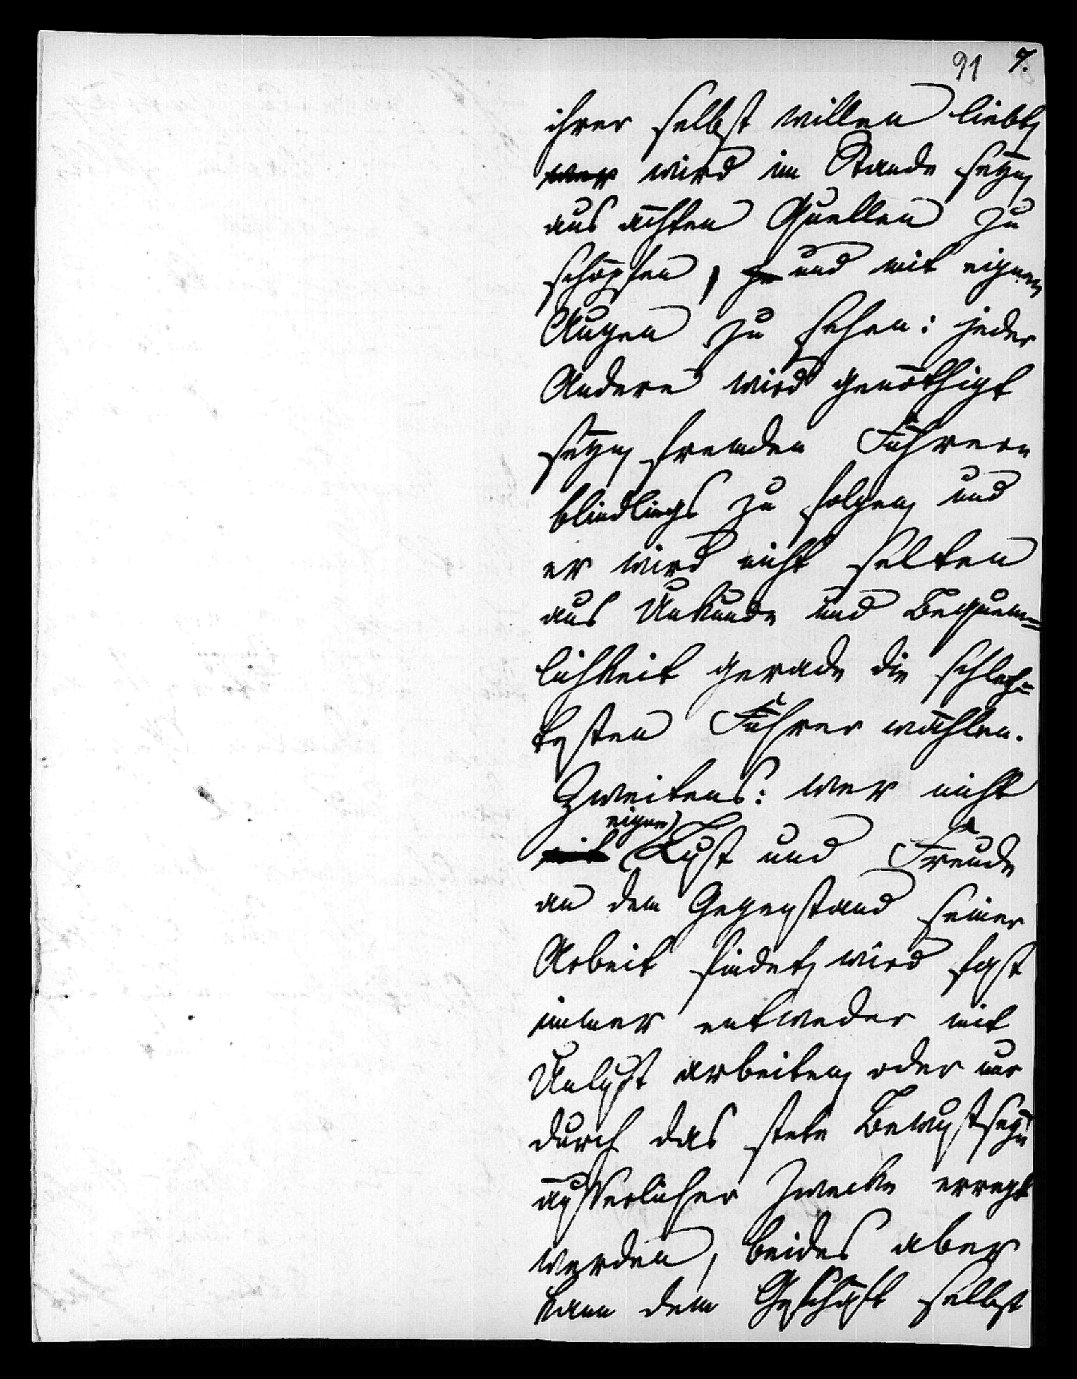 91 7.
ihrer selbst willen liebt,
wer wird im Stande seyn,
aus ächten Quellen zu
schöpfen, zu und mit eignen
Augen zu sehen: jeder
Andere wird genöthigt
seyn, fremden Führern
blindlings zu folgen, und
er wird nicht selten
aus Unkunde und Bequem=
lichkeit gerade die schlech=
testen Führer wählen.
Zweitens: wer nicht
eigne
mit Lust und Freude
an dem Gegenstand seiner
Arbeit findet, wird fast
immer entweder mit
Unlust arbeiten, oder nur
durch das stete Bewustseyn
äusserlicher Zwecke erregt
werden, beides aber
kann dem Geschäft selbst